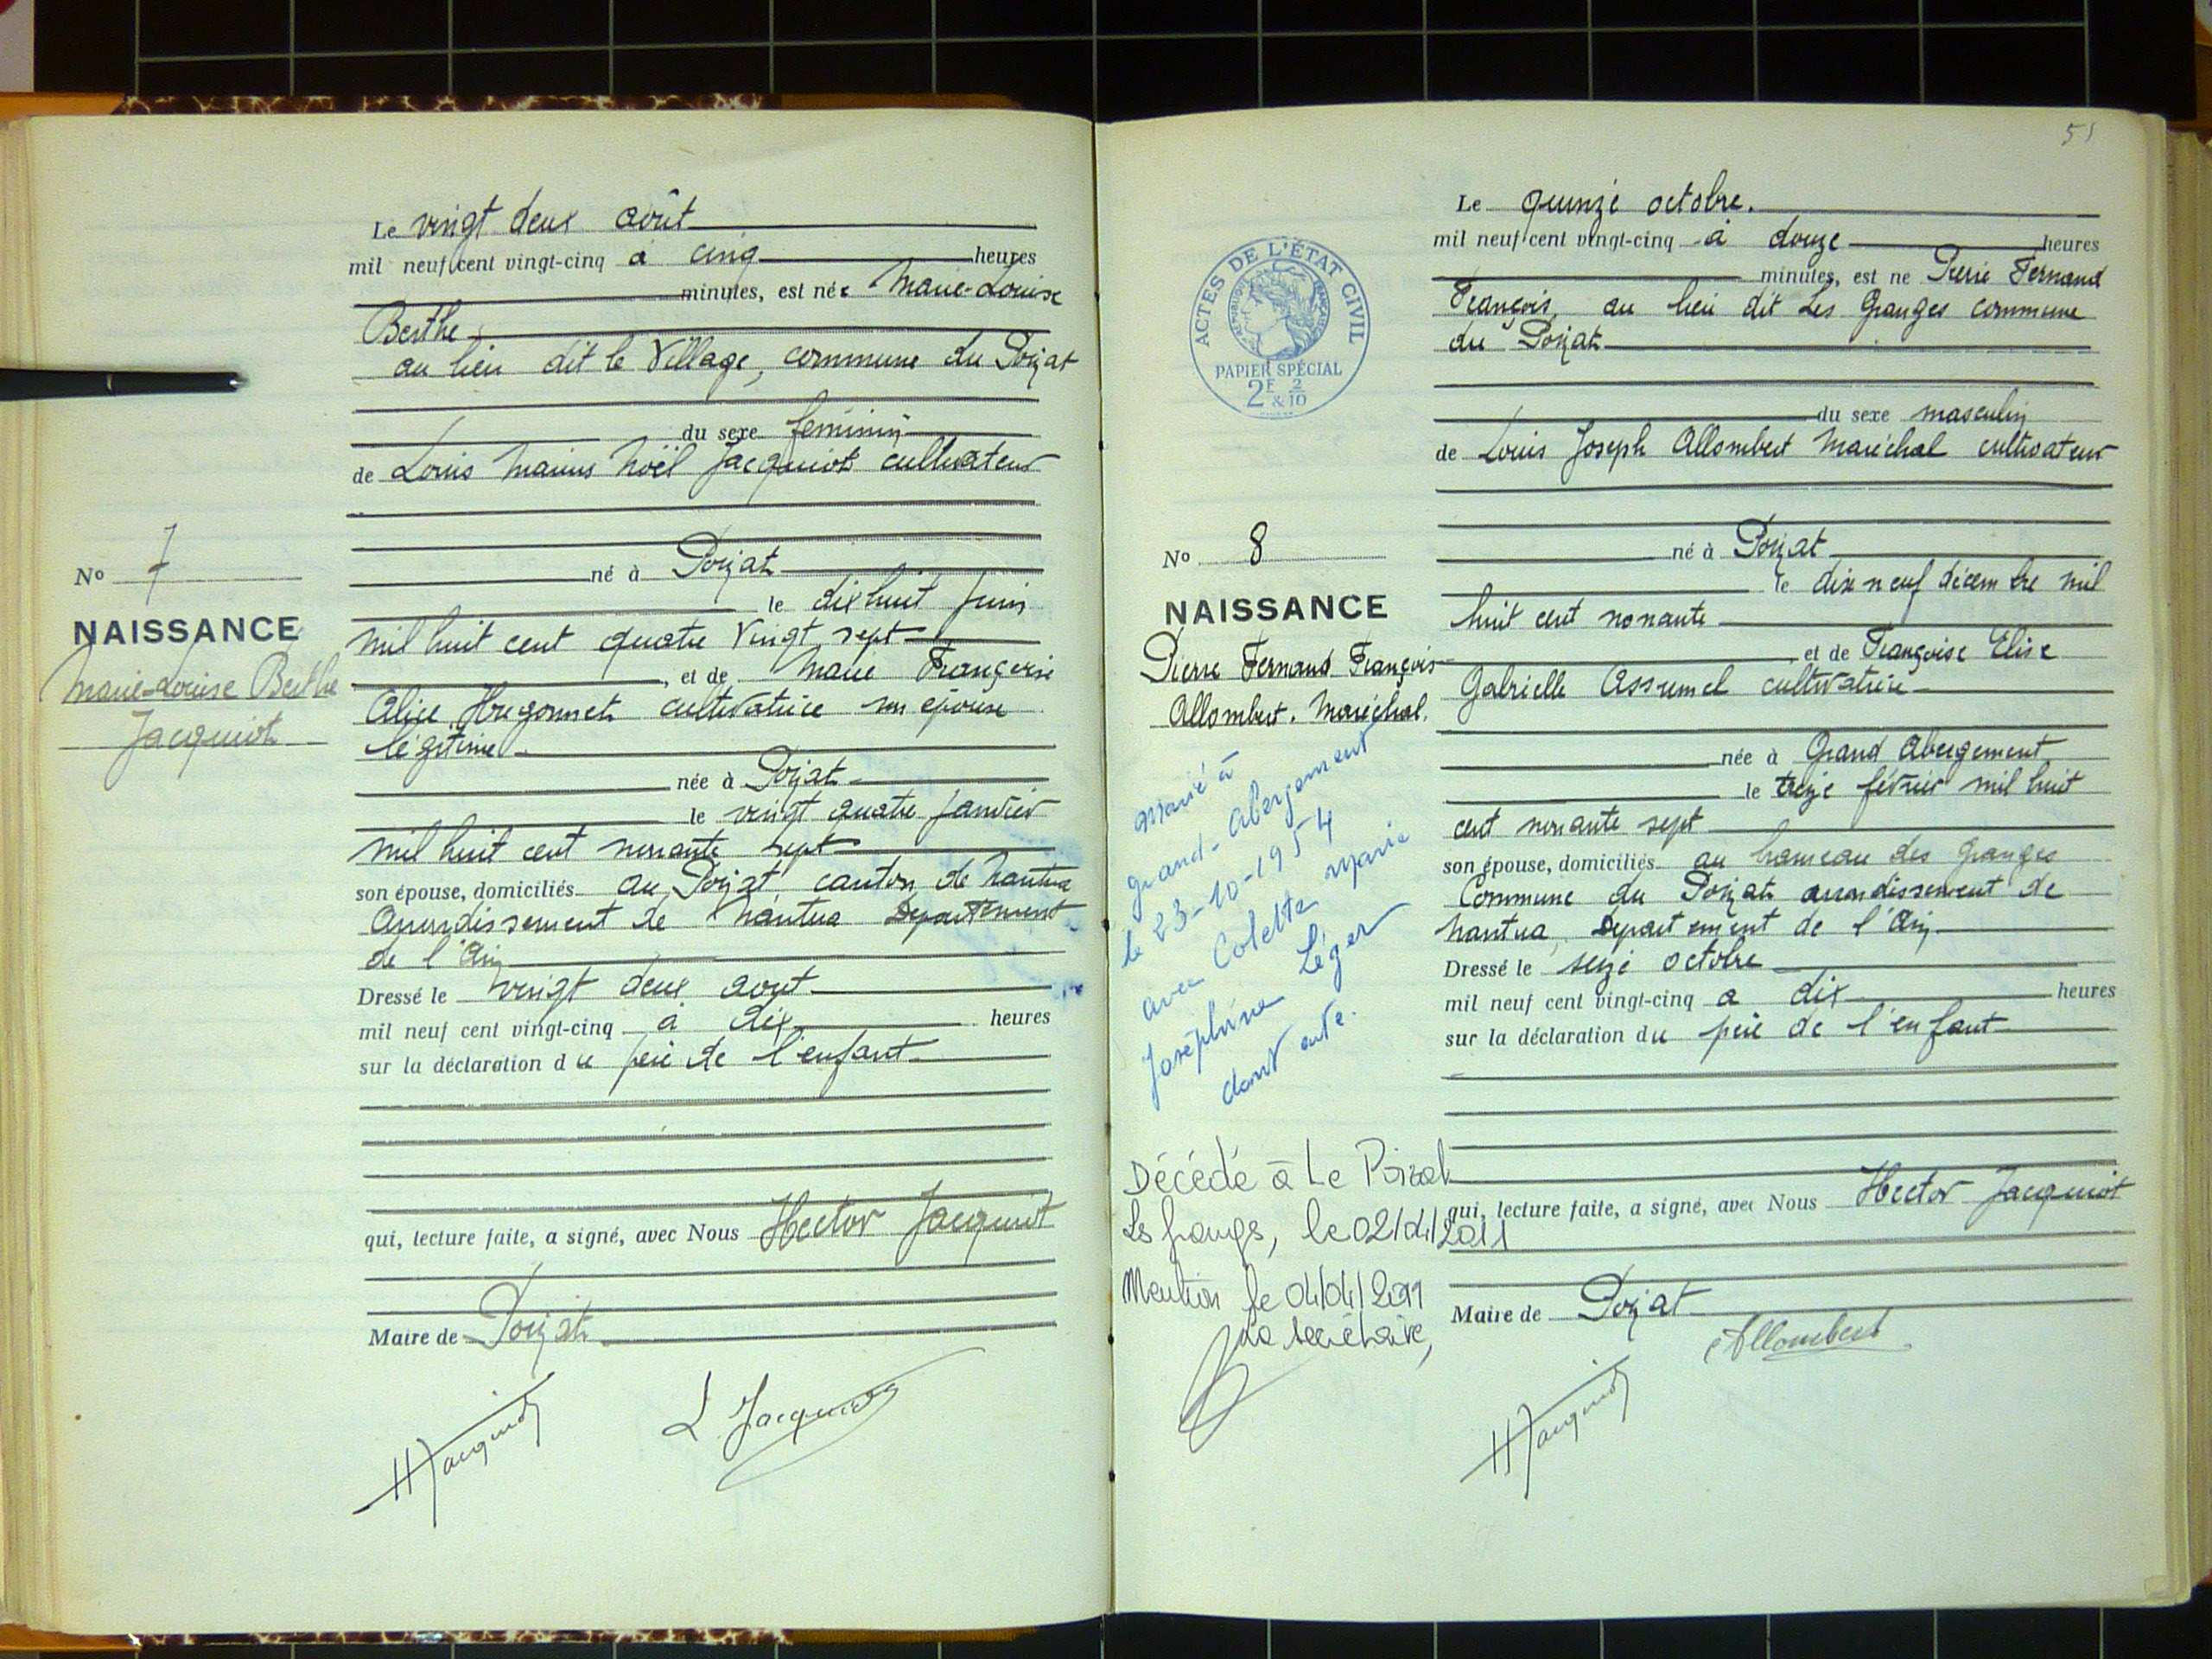 Le vingt deux août
mil neuf cent vingt-cinq à cinq heures
minutes, est née Marie-Louise
Berthe
au lieu dit le Village, commune du Poizat
du sexe féminin
de Louis Marius Noël Jacquiot cultivateur
né à Poizat
le dix huit Juin
mil huit cent quatre vingt sept
, et de Marie Françoise
Alice Hugonnet cultivatrice son épouse
légitime
née à Poizat
le vingt quatre Janvier
mil huit cent nonante sept
son épouse, domiciliés au Poizat canton de Nantua
Arrondissement de Nantua Département
de l'Ain
Dressé le vingt deux aout
mil neuf cent vingt-cinq à dix heures
sur la déclaration du père de l'enfant
qui, lecture faite, a signé, avec Nous Hector Jacquiot
Maire de Poizat
HJacquiot
L Jacquiot
No 7
NAISSANCE
Marie-Louise Berthe
Jacquiot
51
Le quinze octobre.
mil neuf cent vingt-cinq à douze heures
minutes, est né Pierre Fernand
François, au lieu dit Les Granges commune
du Poizat
du sexe masculin
de Louis Joseph Allombert Maréchal cultivateur
né à Poizat
le dix neuf décembre mil
huit cent nonante
et de Françoise Elise
Gabrielle Assumel cultivatrice
née à Grand Abergement
le treize février mil huit
cent nonante sept
son épouse, domiciliés au hameau des Granges
Commune du Poizat arrondissement de
Nantua, Département de l'Ain
Dressé le seize octobre
mil neuf cent vingt-cinq a dix heures
sur la déclaration du père de l'enfant
qui, lecture faite, a signé, avec Nous Hector Jacquiot
Maire de Poizat
Allombert
HJacquiot
ACTES DE L'ÉTAT CIVIL
RÉPUBLIQUE FRANÇAISE
PAPIER SPÉCIAL
2F & 2/10
No 8
NAISSANCE
Pierre Fernand François
Allombert. Maréchal.
Marié à
Grand-Abergement
le 23-10-1954
avec Colette Marie
Joséphine Léger
dont acte.
Décédé à Le Poizat
Les Granges, le 02/04/2011
Mention le 04/04/2011
La secrétaire,